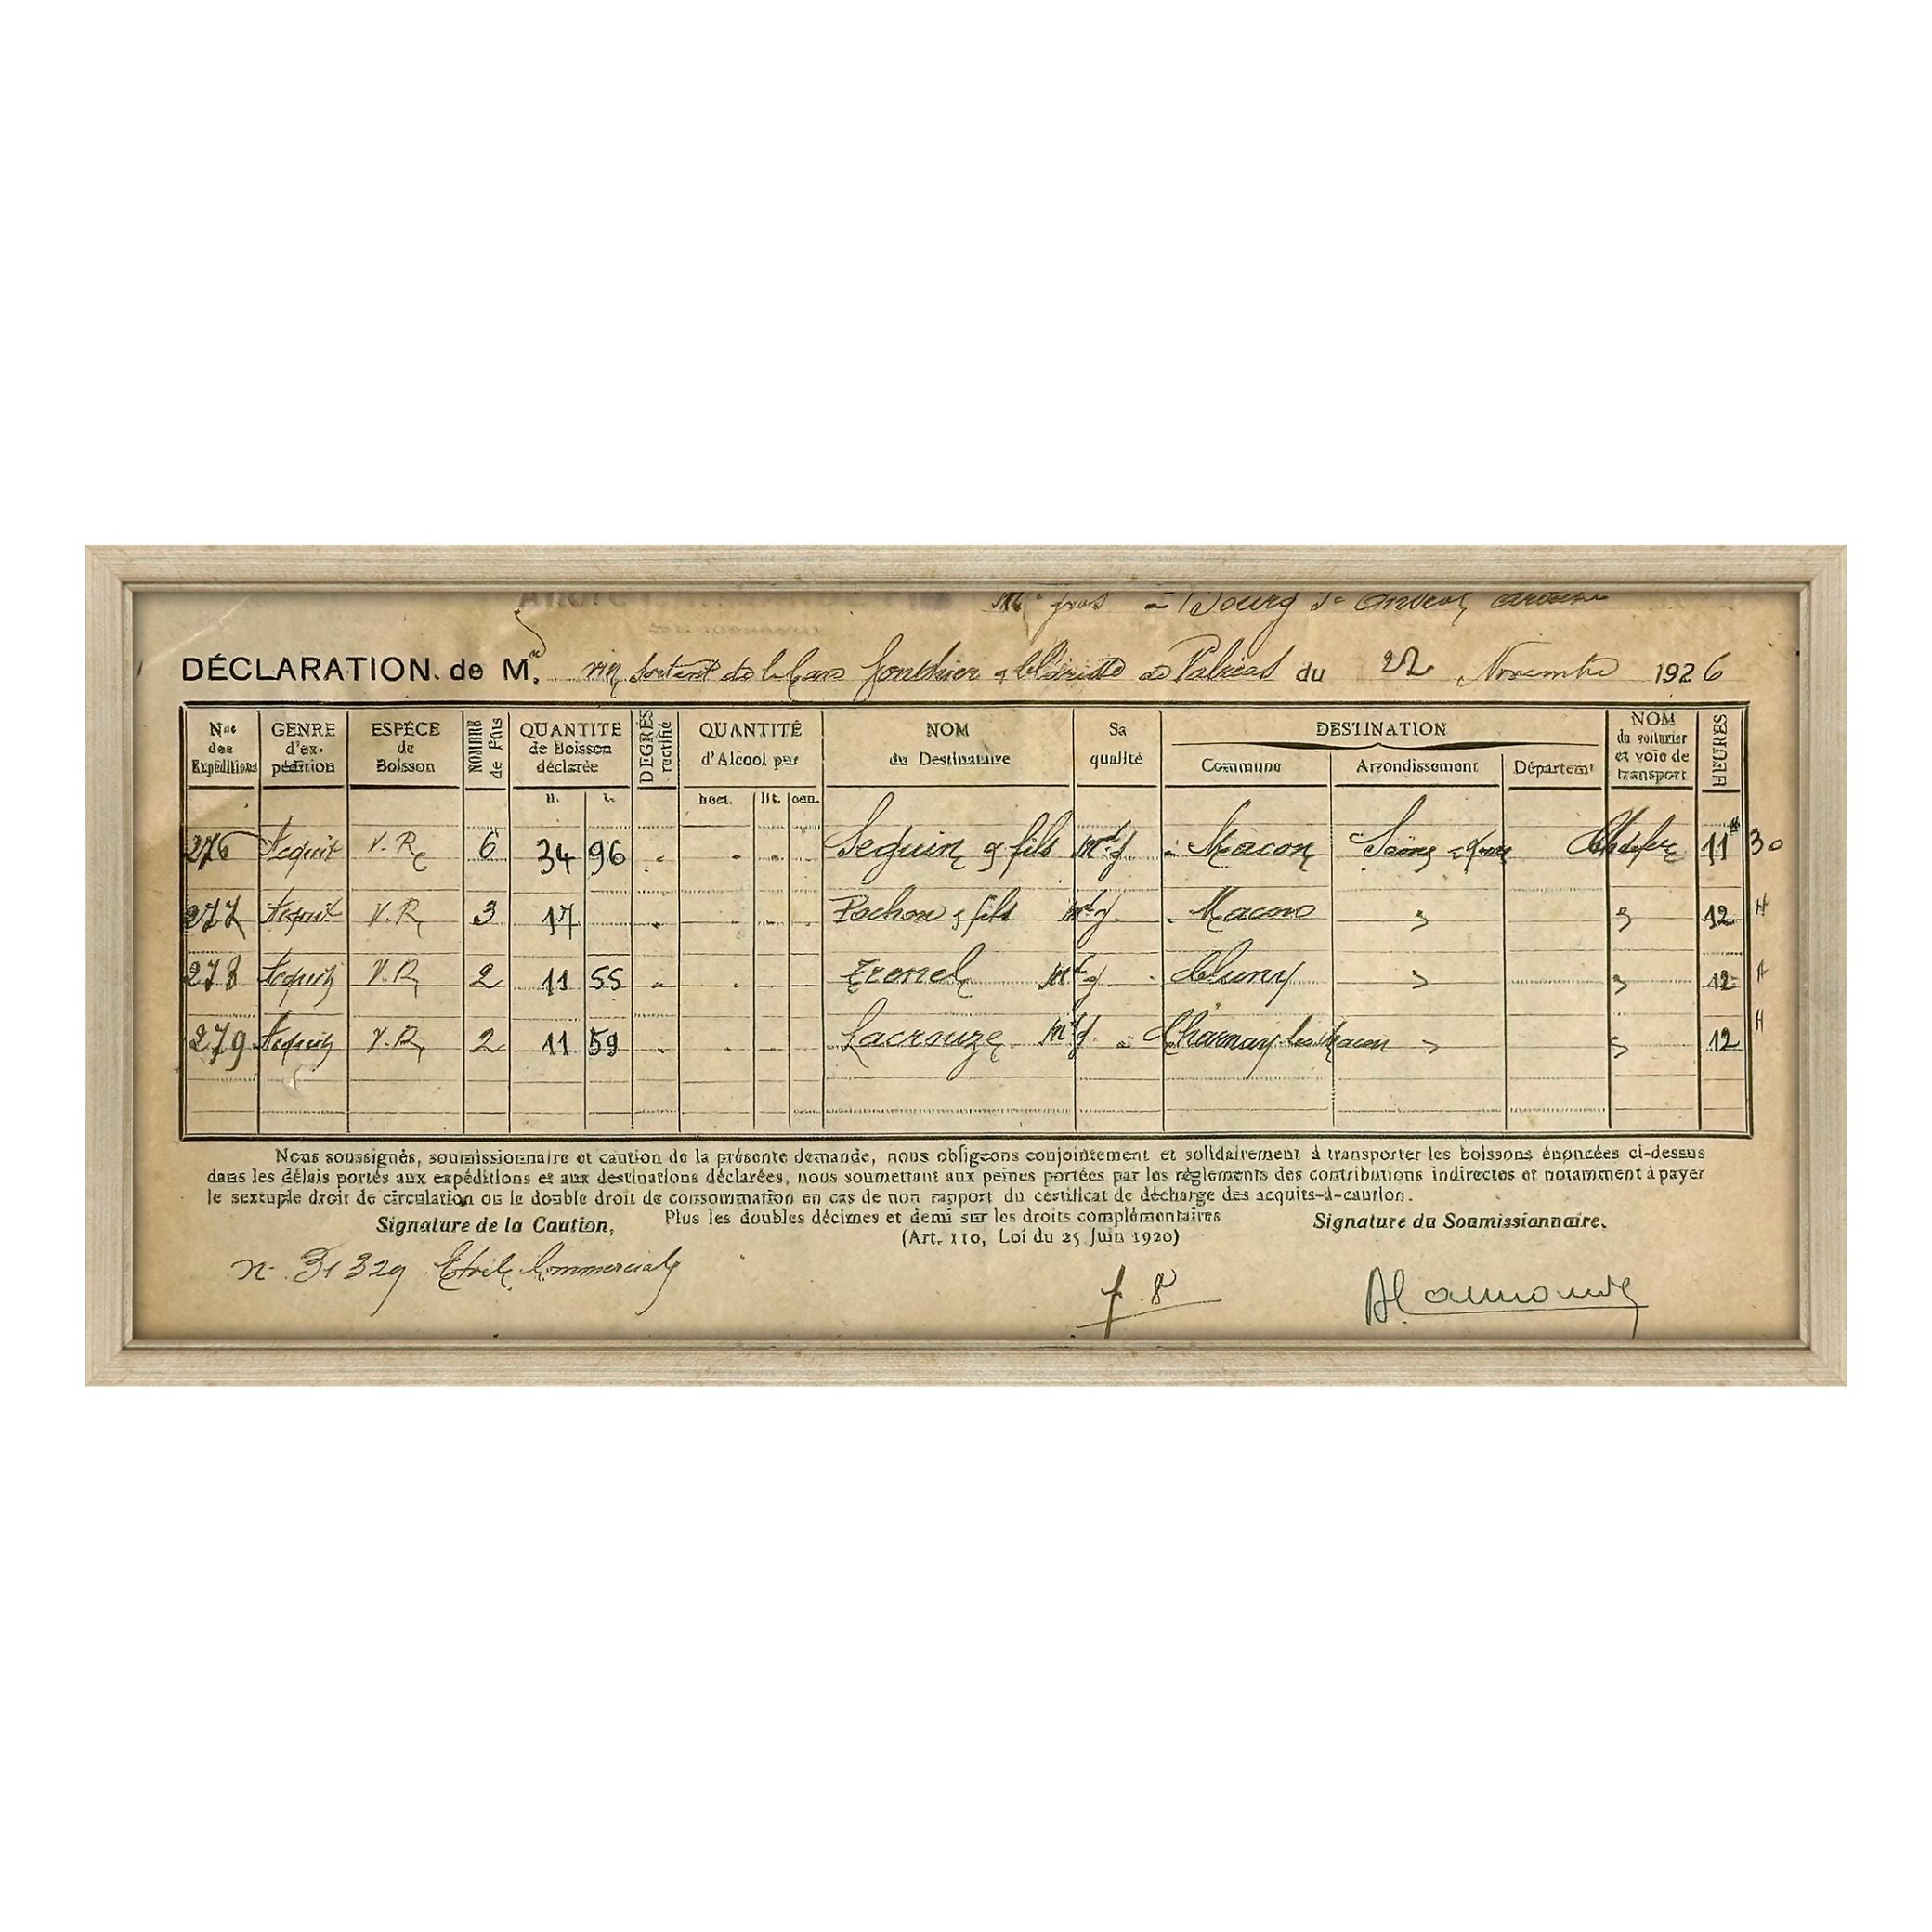 DÉCLARATION. de M. vin sortant de & de du 22 Novembre 1926
Nos des Expéditions GENRE d'expédition ESPÉCE de Boisson NOMBRE de Fûts QUANTITE de Boisson déclarée DEGRES rectifié QUANTITÉ d'Alcool par NOM du Destinataire Sa qualité DESTINATION NOM du voiturier et voie de transport HEURES
Commune Arrondissement Départemt
H. L. hect. lit. cen.
276 Acquit V. R. 6 34 96 Seguin & fils Md g. Macon Saône & Loire Ch de fer 11 H 30
277 Acquit V. R. 3 17 Pochon & fils Md g. Macon " " 12 H
278 Acquit V. R. 2 11 55 Trenel Md g. Cluny " " 12 H
279 Acquit V. R. 2 11 59 Lacrouze Md g. Charnay les Macon " " 12 H
Nous soussignés, soumissionnaire et caution de la présente demande, nous obligeons conjointement et solidairement à transporter les boissons énoncées ci-dessus
dans les délais portés aux expéditions et aux destinations déclarées, nous soumettant aux peines portées par les règlements des contributions indirectes et notamment à payer
le sextuple droit de circulation ou le double droit de consommation en cas de non rapport du certificat de décharge des acquits-à-caution.
Signature de la Caution, Plus les doubles décimes et demi sur les droits complémentaires Signature du Soumissionnaire.
(Art. 110, Loi du 25 Juin 1920)
n° 31329